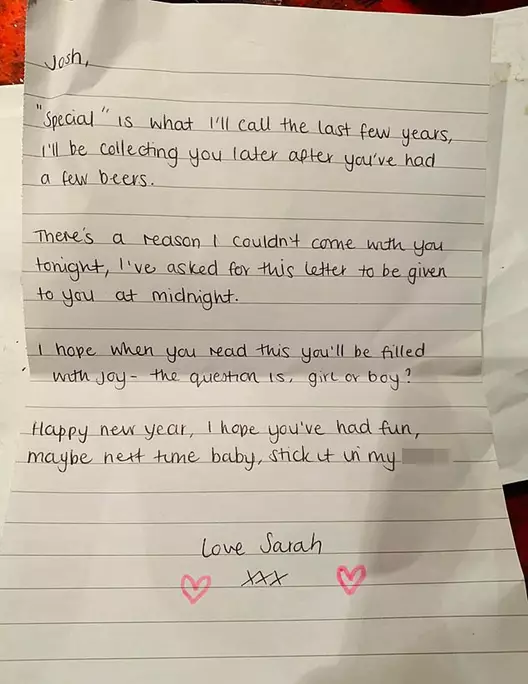 Josh,
"Special" is what I'll call the last few years,
I'll be collecting you later after you've had
a few beers.
There's a reason I couldn't come with you
tonight, I've asked for this letter to be given
to you at midnight.
I hope when you read this you'll be filled
with joy- the question is, girl or boy?
Happy new year, I hope you've had fun,
maybe next time baby, stick it in my
Love Sarah
xxx